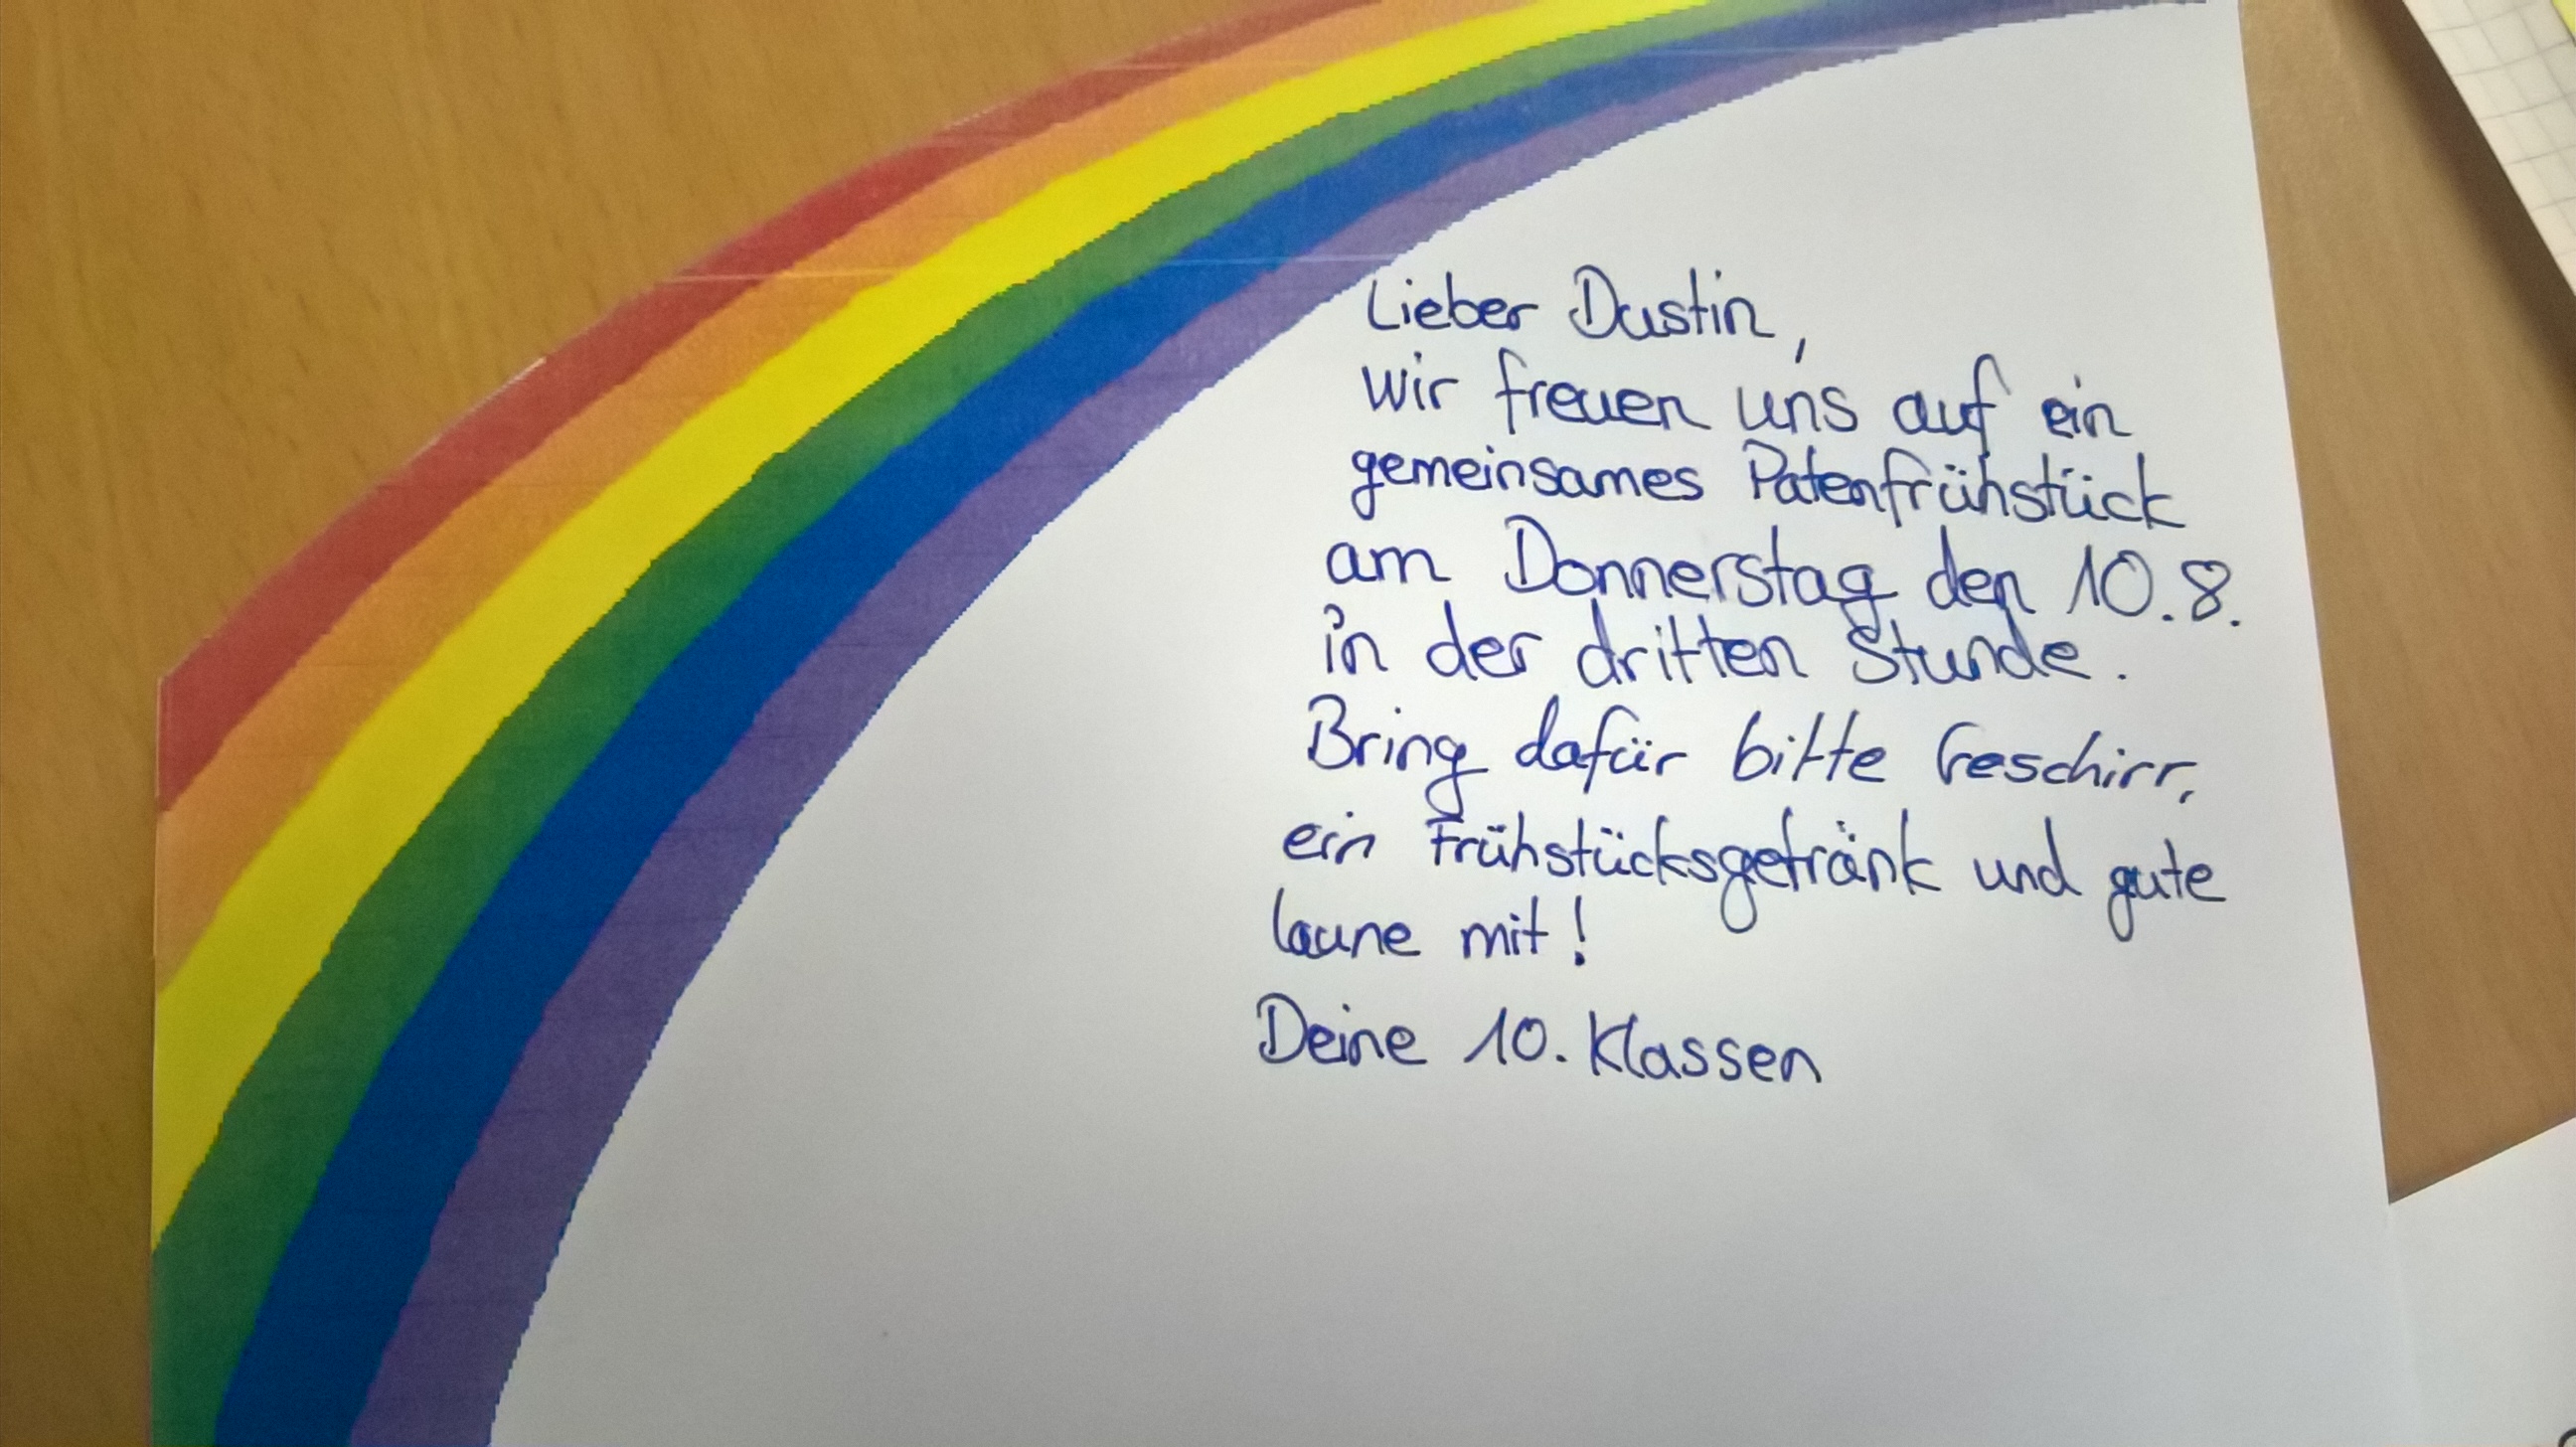 Lieber Dustin,
wir freuen uns auf ein
gemeinsames Patenfrühstück
am Donnerstag den 10.8.
in der dritten Stunde.
Bring dafür bitte Geschirr,
ein Frühstücksgetränk und gute
laune mit!
Deine 10. Klassen